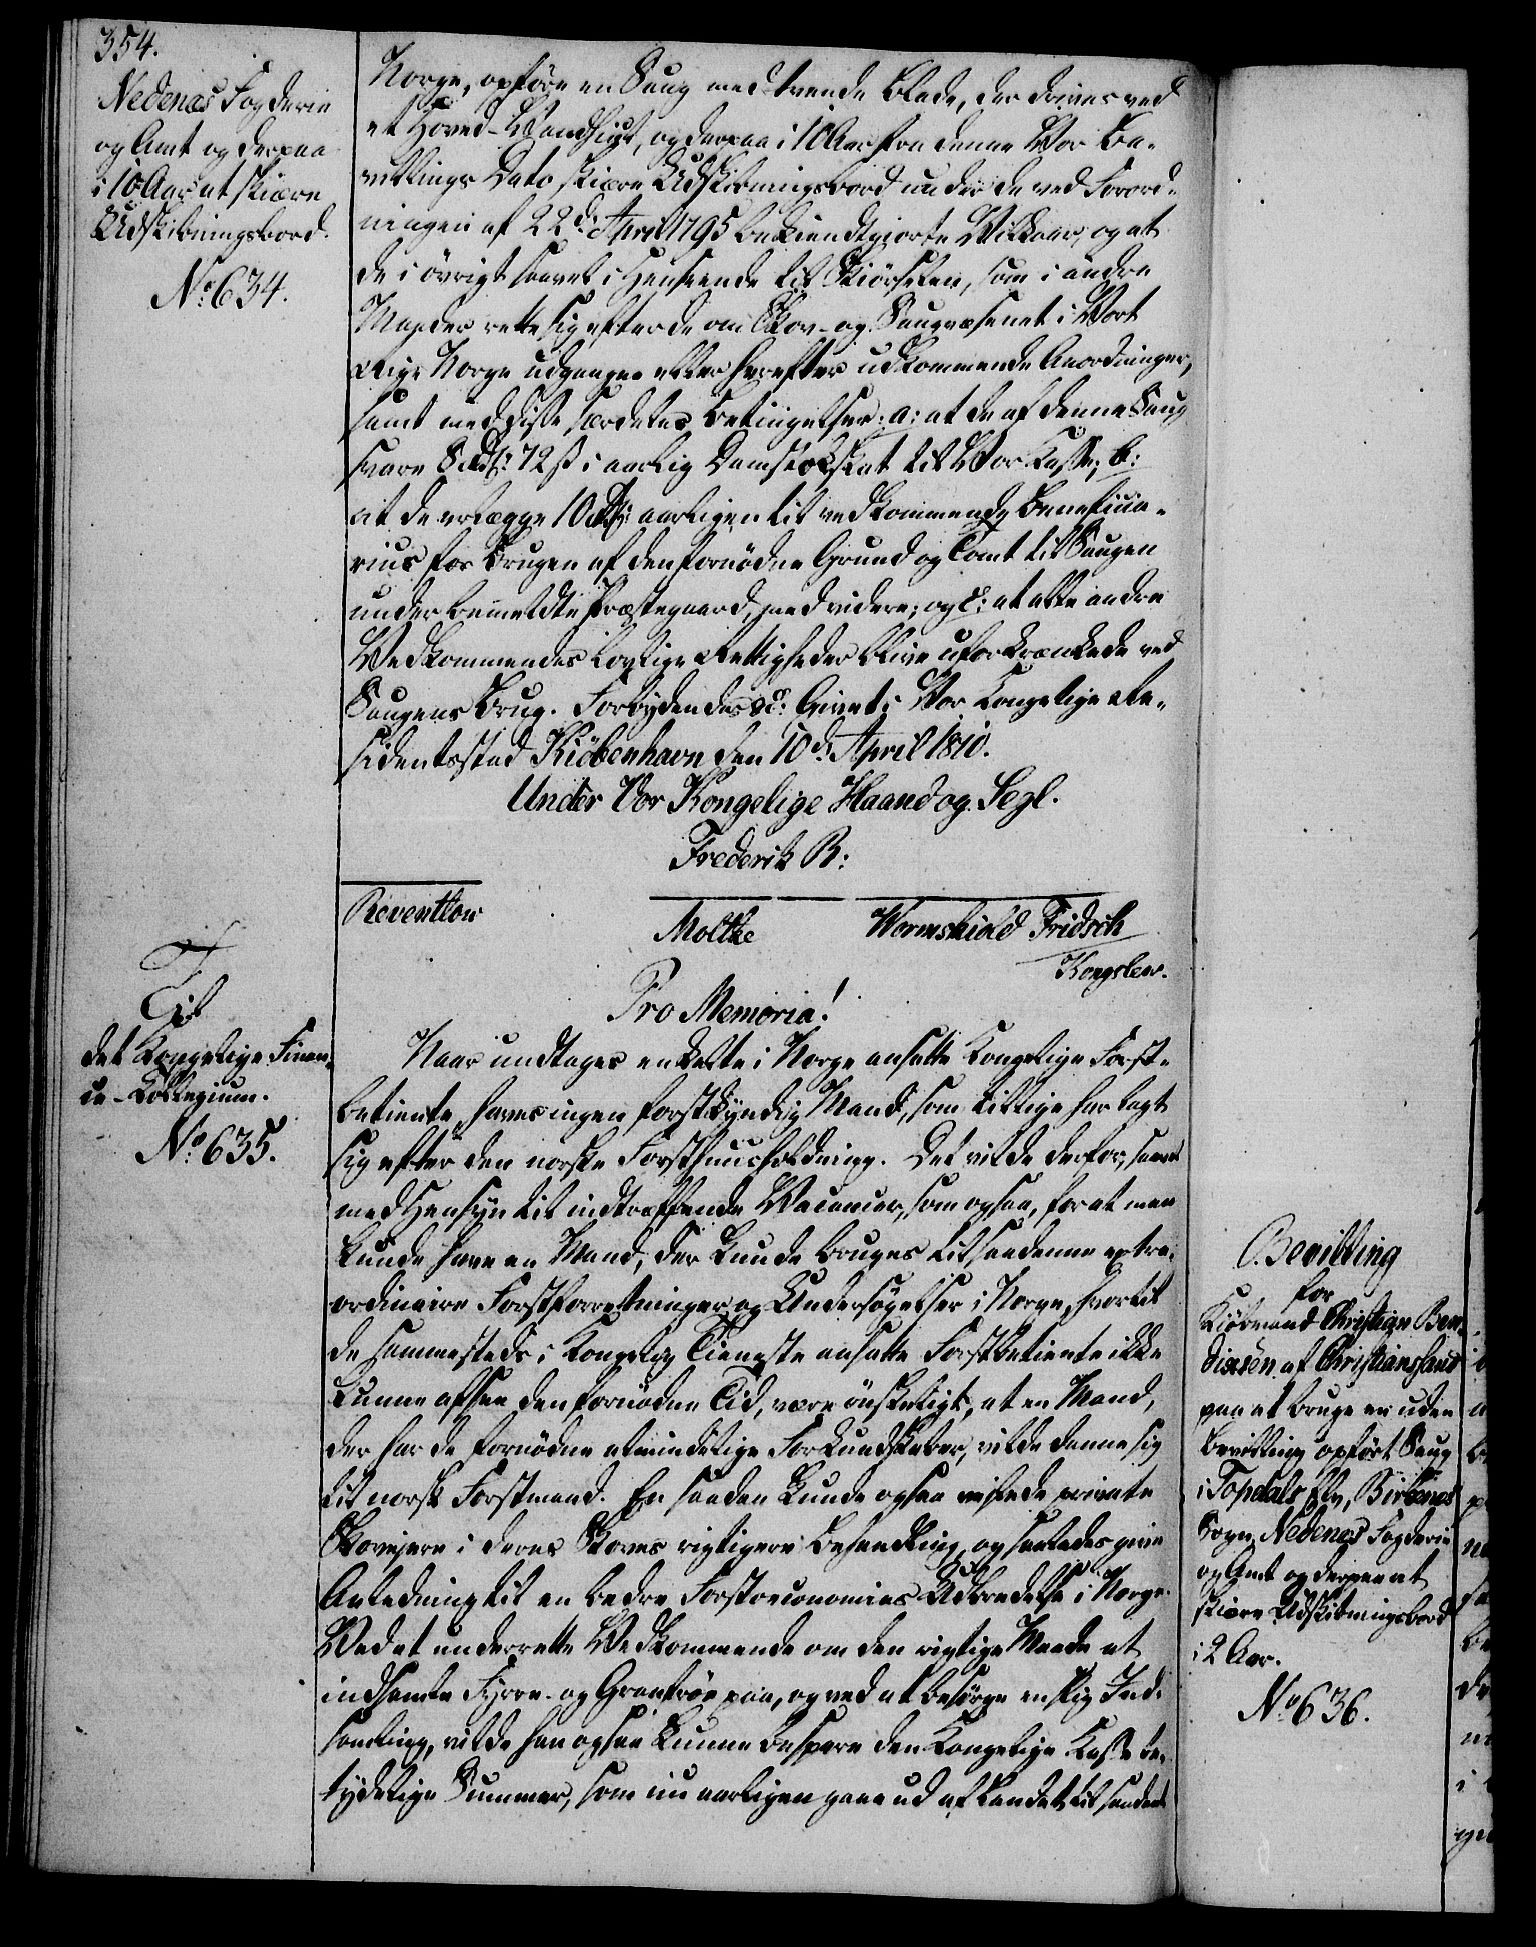 354.
Nedenæs Fogderie
og Amt og derpaa
i 10 Aar at skiære
Udskibningsbord.
No 634.
Norge, opføre en Saug med tvende Blade, der drives ved
et Hoved-Vandhiul, og derpaa i 10 Aar fra denne Vor Be-
villings Dato skiære Udskibningsbord under de ved Forord-
ningen af 22de April 1795 bekiendtgiorte Vilkaar, og at
de i øvrigt saavel i Henseende til Skiørselen, som i andre
Maader rette sig efter de om Skov- og Saugvæsenet i Vort
Rige Norge udgangne eller herefter udkommende Anordninger,
samt med disse særdeles Betingelser: a: at de af denne Saug
svare 8 Rdlr: 72 ß i aarlig Damstokskat til Vor Kasse; b:
at de erlægge 10 Rdlr: aarligen til vedkommende Beneficia-
rius for Brugen af den fornødne Grund og Tomt til Saugen
under bemeldte Præstegaard, med videre; og c: at alle andre
Vedkommendes lovlige Rettigheder blive uforkrænkede ved
Saugens Brug. Forbydendes &c: Givet i Vor Kongelige Re-
sidentsstad Kiöbenhavn den 10de April 1810.
Under Vor Kongelige Haand og Segl.
Frederik R:
Reventlow
Moltke Wormskiold Fridsch
Kongslew.
Til
det Kongelige Finan-
ce-Kollegium.
No 635.
Pro Memoria!
Naar undtages enkelte i Norge ansatte Kongelige Forst-
betiente, haves ingen forstkyndig Mand, som tillige har lagt
sig efter den norske Forsthuusholdning. Det vilde derfor, saavel
med Hensyn til indtræffende Vacancer, som ogsaa, for at man
kunde have en Mand, der kunde bruges til saadanne extra-
ordinaire Forstforretninger og Undersøgelser i Norge, hvortil
de sammesteds i Kongelig Tieneste ansatte Forstbetiente ikke
kunne afsee den fornødne Tid, være ønskeligt, at en Mand,
der har de fornødne almindelige Forkundskaber, vilde danne sig
til norsk Forstmand. En saadan kunde ogsaa veilede private
Skovejere i deres Skoves rigtigere Behandling, og saaledes give
Anledning til en bedre Forstoeconomies Udbredelse i Norge.
Ved at underrette Vedkommende om den rigtige Maade at
indsamle Fyrre- og Granfrøe paa, og ved at besørge en slig Ind-
samling, vilde han ogsaa kunne bespare den Kongelige Kasse be-
tydelige Summer, som nu aarligen gaae ud af Landet til saadant
Bevilling
for
Kiöbmand Christian Ben-
dixsen af Christiansand
paa at bruge en uden
Bevilling opført Saug
i Topdals Elv, Birkenes
Sogn, Nedenes Fogderie
og Amt og derpaa at
skiære Udskibningsbord
i 2 Aar.
No 636.